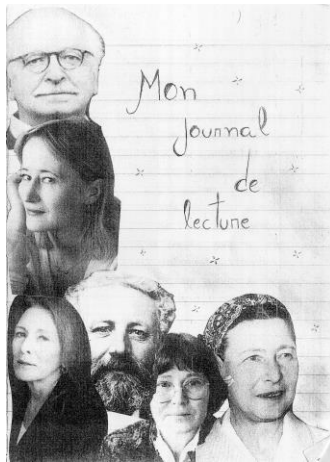 Mon
journal
de
lecture